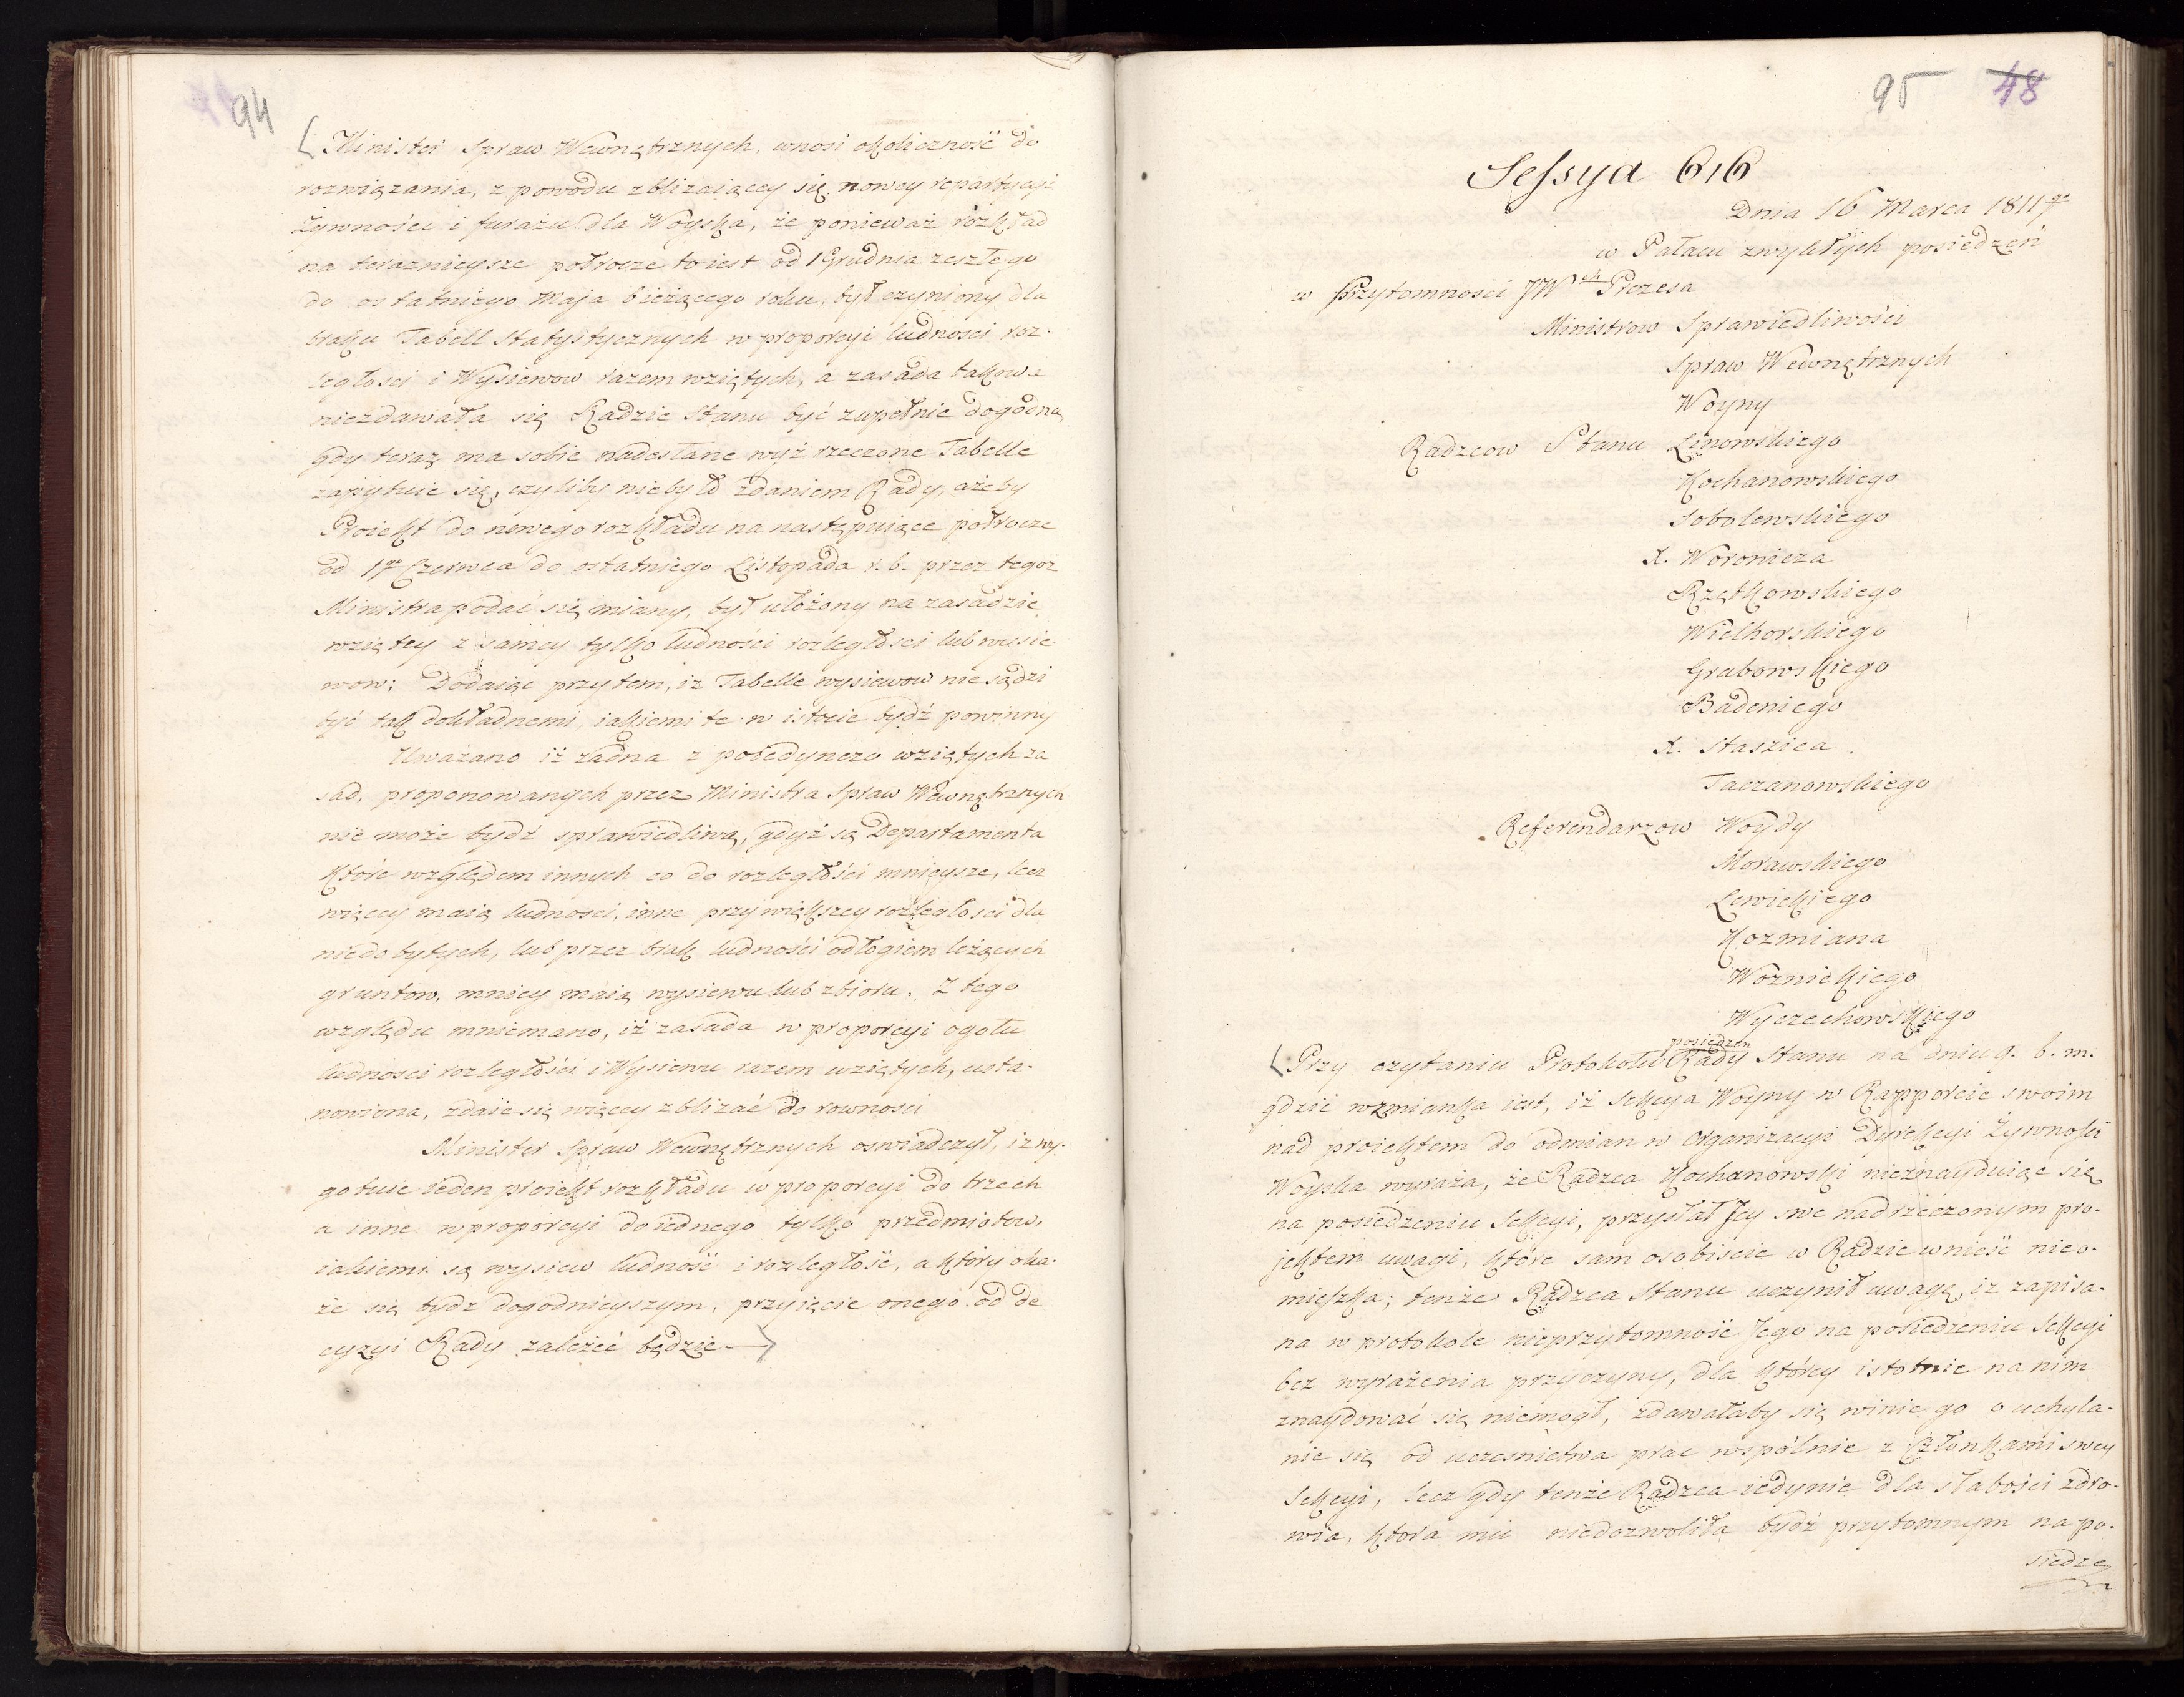 94
Minister Spraw Wewnętrznych, wnosi okoliczność do
rozwiązania, z powodu zbliżaiącey się nowey repartycyi
Żywności i furażu dla Woyska, że ponieważ rozkład
na teraznieysze połrocze to iest od 1 Grudnia zeszłego
do ostatniego Maja bieżącego roku, był czyniony dla
braku Tabell Statystycznych w proporcyi ludnosci roz-
ległosci i Wysiewow razem wziętych, a zasada takowa
niezdawała się Radzie Stanu być zupełnie dogodną
gdy teraz ma sobie nadesłane wyż rzeczone Tabelle
zapytuie się, czyliby niebyło zdaniem Rady, ażeby
Proiekt do nowego rozkładu na następuiące połrocze
od 1go Czerwca do ostatniego Listopada r. b. przez tegoż
Ministra podać się miany, był ułożony na zasadzie
wziętey z samey tylko ludności rozległosci lub wysie
wow; Dodaiąc przytem, iż Tabelle wysiewow nie sądzi
być tak dokładnemi, iakiemi te w istocie bydź powinny
Uważano iż żadna z poiedynczo wziętych za
sad, proponowanych przez Ministra Spraw Wewnętrznych
nie może bydź sprawiedliwą, gdyż są Departamenta
które względem innych co do rozległości mnieysze, lecz
więcey maią ludnosci, inne przy większey rozległosci dla
niedobytych, lub przez brak ludności odłogiem leżących
gruntow, mniey maią wysiewu lub zbioru. Z tego
względu mniemano, iż zasada w proporcyi ogołu
ludnosci rozległości i Wysiewu razem wziętych, usta-
nowiona, zdaie się więcey zbliżać do rowności
Minister Spraw Wewnętrznych oswiadczył, iż wy-
gotuie ieden proiekt rozkładu w proporcyi do trzech
a inne w proporcyi do iednego tylko przedmiotow,
iakiemi są wysiew ludność i rozległość, a który oka-
że się bydź dogodnieyszym, przyięcie onego od de
cyzyi Rady zależeć będzie
95 48
Sessya 616
Dnia 16 Marca 1811go
w Pałacu zwykłych posiedzeń
w Przytomnosci JWch Prezesa
Ministrow Sprawiedliwości
Spraw Wewnętrznych
Woyny
Radzcow Stanu Linowskiego
Kochanowskiego
Sobolewskiego
X. Woronicza
Rzętkowskiego
Wielhorskiego
Grabowskiego
Badeniego
X. Staszica.
Taczanowskiego
Referendarzow Woydy
Morawskiego
Lewickiego
Kozmiana
Woznickiego
Wyczechowskiego
posiedzeń
Przy czytaniu Protokołu Rady Stanu na dniu 9. b. m.
gdzie wzmianka iest, iż Sekcya Woyny w Rapporcie swoim
nad proiektem do odmian w Organizacyi Dyrekcyi Żywności
Woyska wyraża, że Radzca Kochanowski nieznayduiąc się
na posiedzeniu Sekcyi, przysłał Jey swe nad rzeczonym pro-
jektem uwagi, które sam osobiscie w Radzie wnieść nieo-
mieszka; tenże Radzca Stanu uczynił uwagę, iż zapisa-
na w protokole nieprzytomność Jego na posiedzeniu Sekcyi
bez wyrażenia przyczyny, dla którey istotnie na nim
znaydować się niemogł, zdawałaby się winić go o uchyla-
nie się od uczesnictwa prac wspólnie z Członkami swey
Sekcyi, lecz gdy tenże Radzca iedynie dla słabości zdro-
wia, ktora mu niedozwoliła bydź przytomnym na po-
siedze